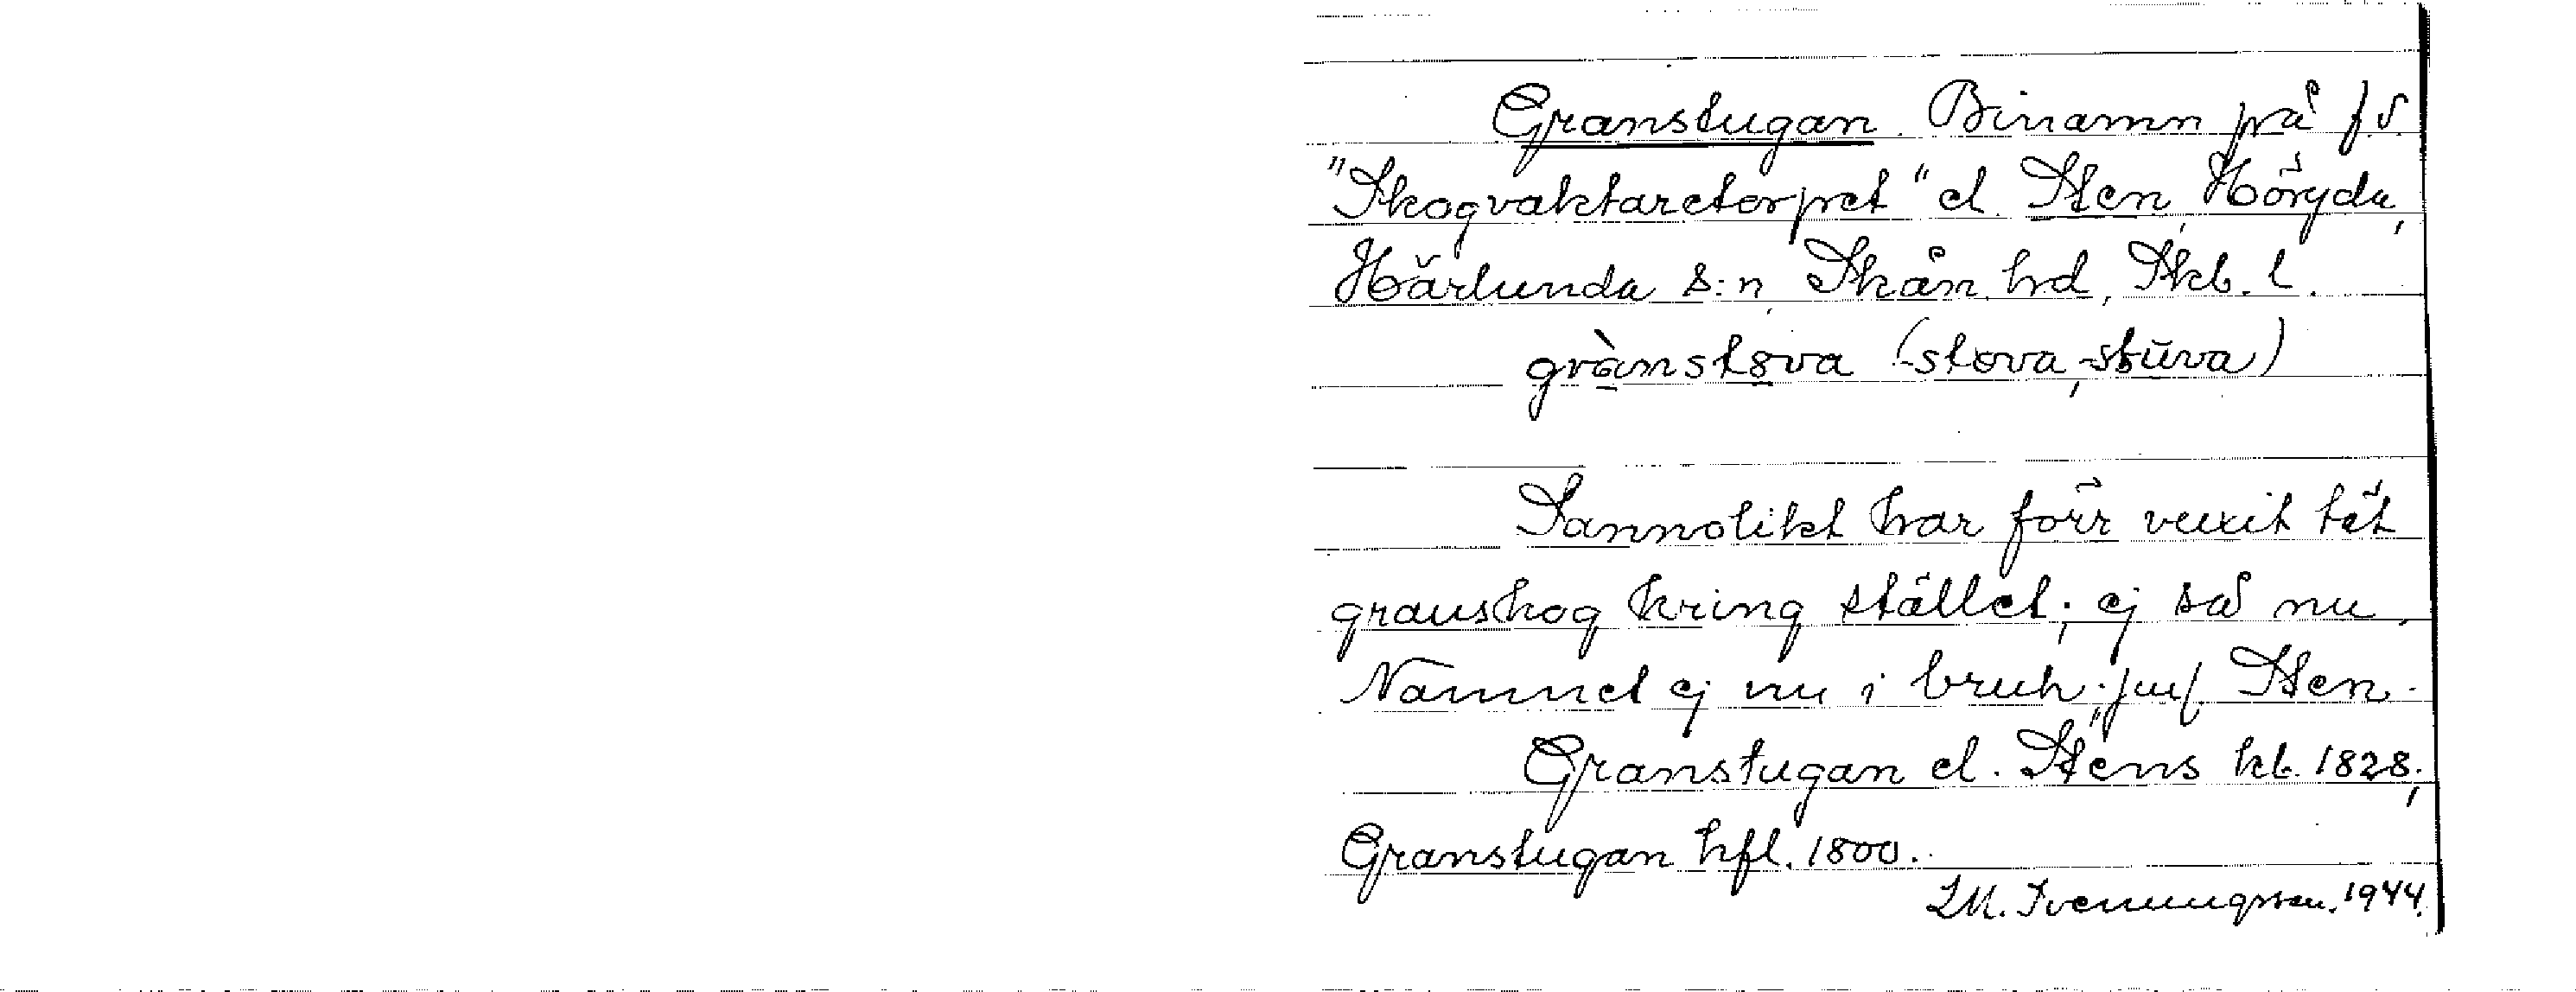 Granstugan. Binamn på f.d.
"Skogvaktaretorpet" el. Sten, Höryda,
Härlunda s:n, Skån. hd, Kbl. l.
grànstova (-stova, -stuva)
Sannolikt har förr vuxit tät
granskog kring stället; ej så nu.
Namnet ej nu i bruk; jmf. Sten.
Granstugan el. Stens kb. 1828;
Granstugan hfl. 1800.
1944.